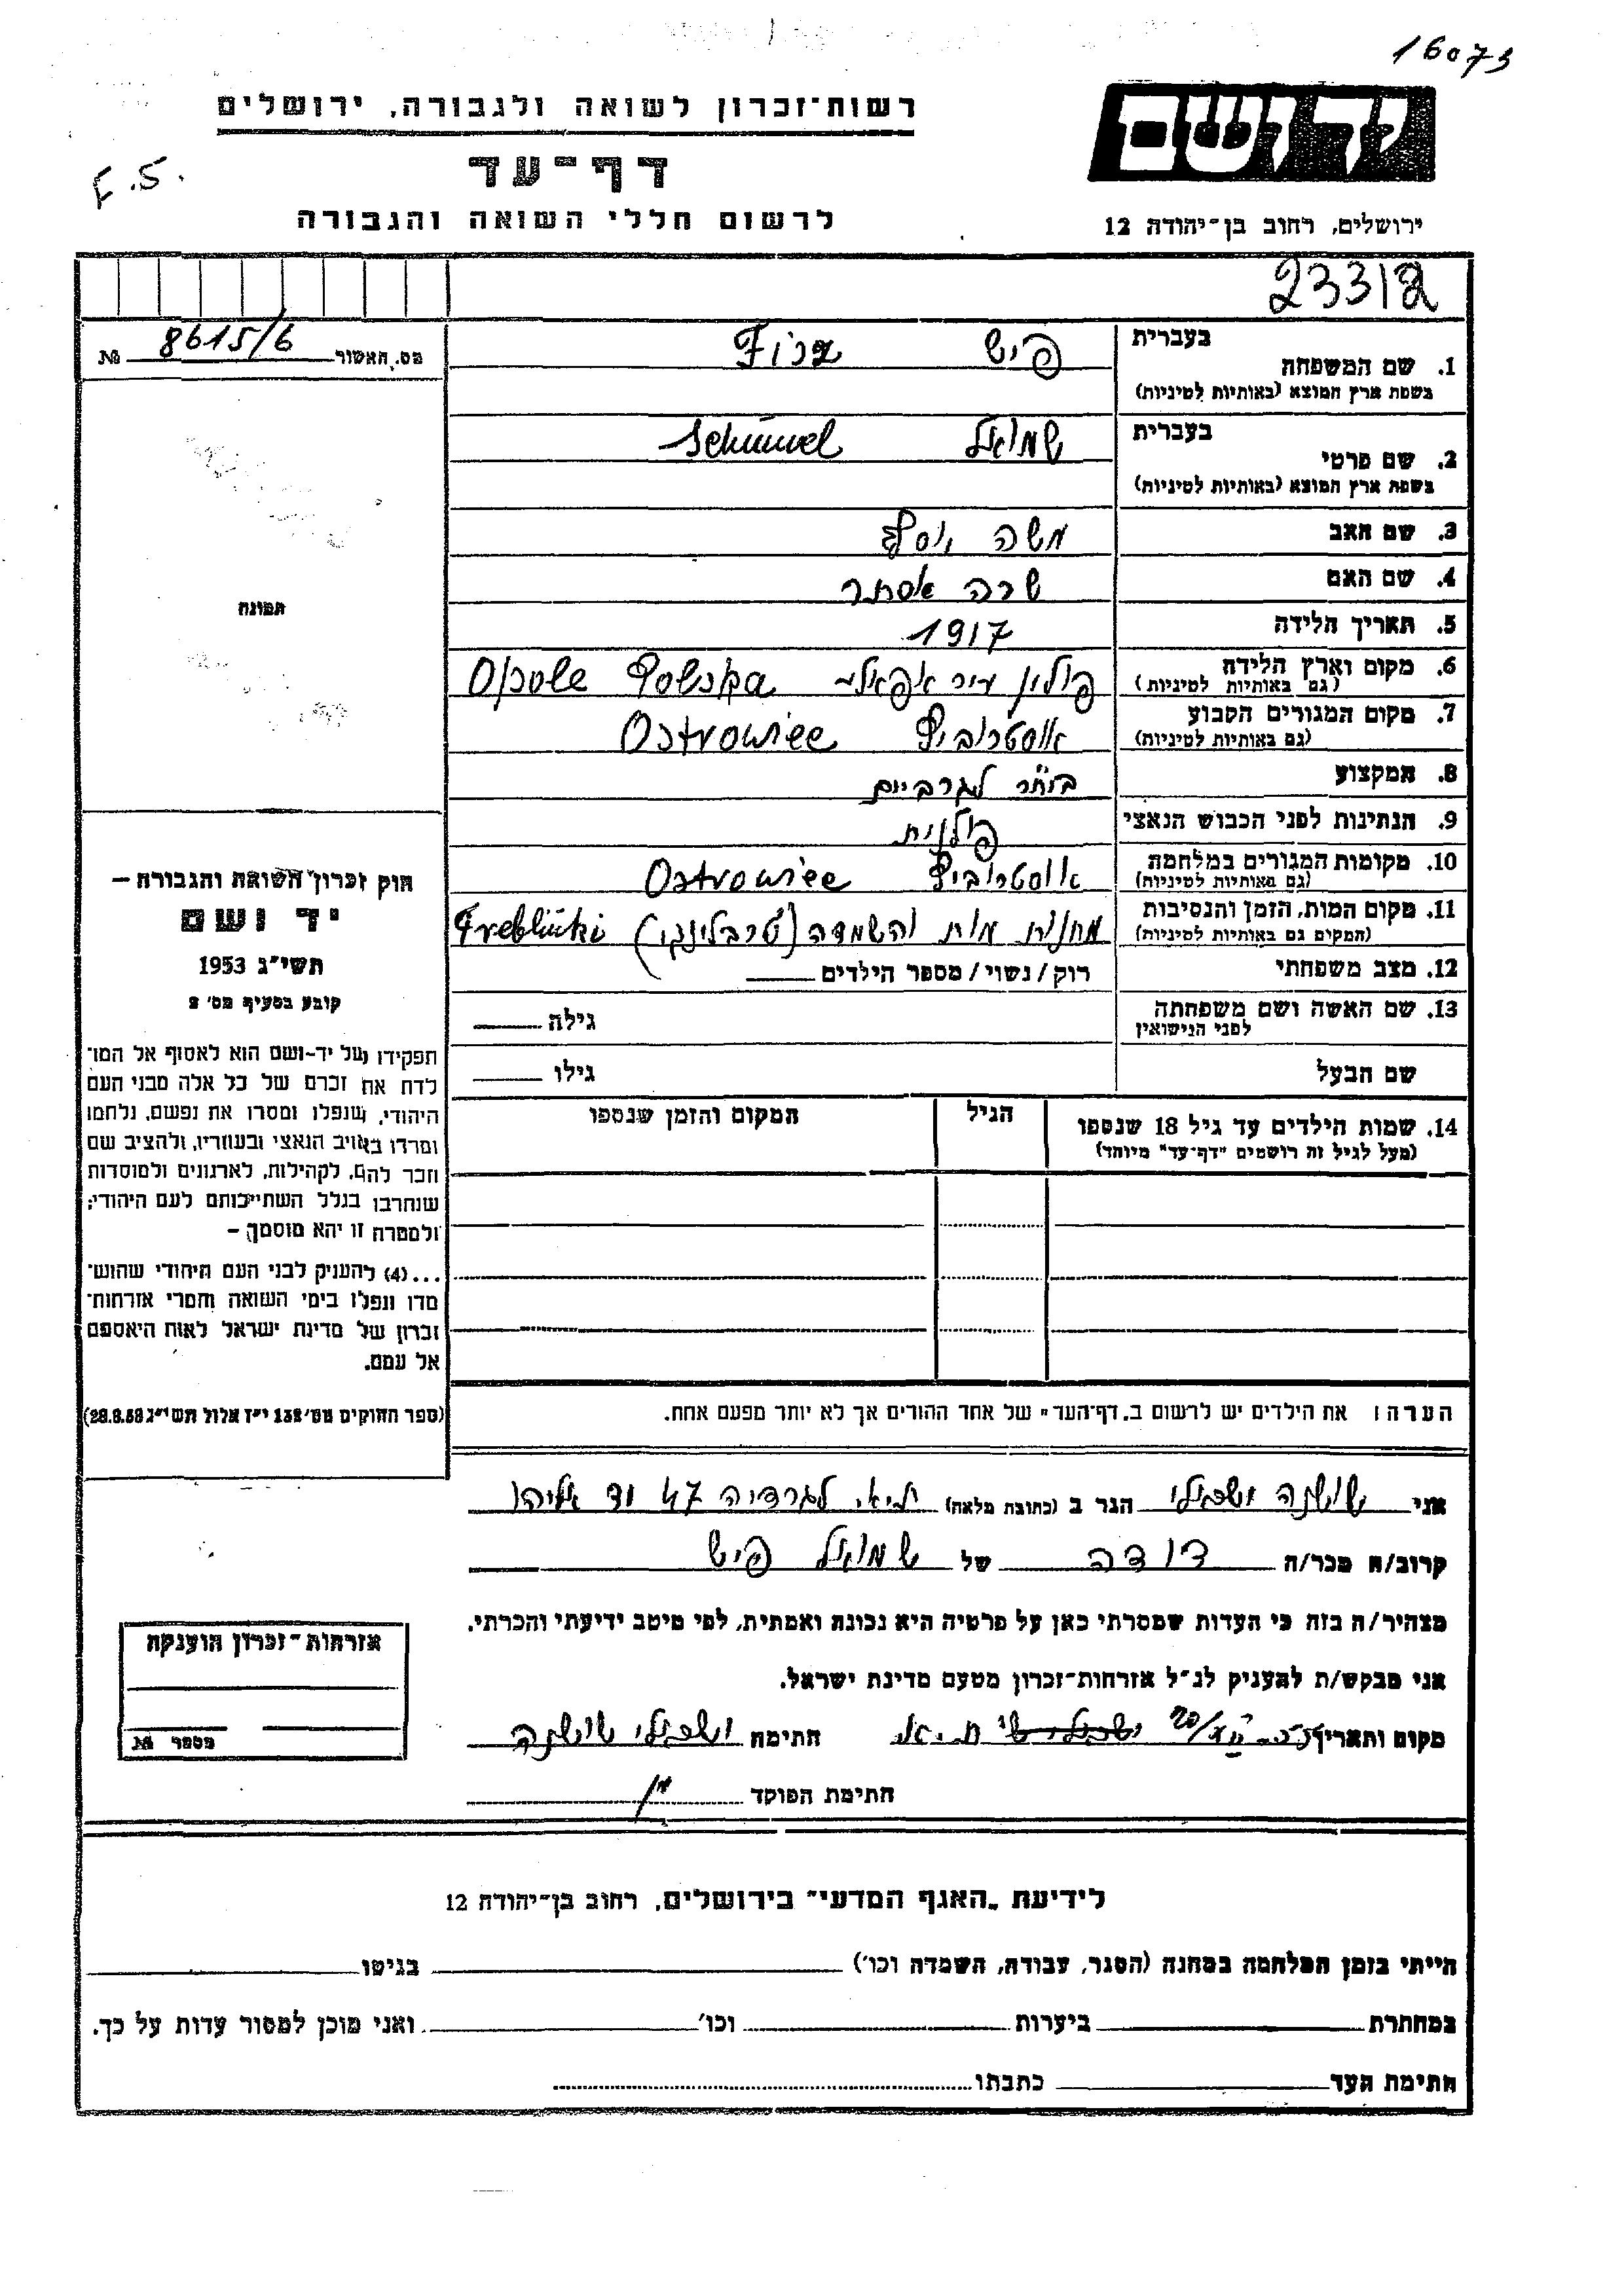 16073
רשות־זכרון לשואה ולגבורה, ירושלים
יד ושם
דף־עד
E.S.
לרשום חללי השואה והגבורה
ירושלים, רחוב בן־יהודה 12
23312
מס. האשור 8615/6 №
בעברית
1. שם המשפחה
בשפת ארץ המוצא (באותיות לטיניות)
פיש
בעברית
2. שם פרטי
בשפת ארץ המוצא (באותיות לטיניות)
שמואל Schmuel
3. שם האב משה יוסף
4. שם האם שרה אסתר
5. תאריך הלידה 1917
6. מקום וארץ הלידה
(גם באותיות לטיניות)
פולין עיר אפאלע Opole Polska
7. מקום המגורים הקבוע
(גם באותיות לטיניות)
אוסטרוביץ Ostrowiec
8. המקצוע
9. הנתינות לפני הכבוש הנאצי פולנית
10. מקומות המגורים במלחמה
(גם באותיות לטיניות)
אוסטרוביץ Ostrowiec
11. מקום המות, הזמן והנסיבות
(המקום גם באותיות לטיניות)
מחנות מות והשמדה (טרבלינקי) Treblinki
12. מצב משפחתי רוק / נשוי / מספר הילדים
13. שם האשה ושם משפחתה
לפני הנישואין
גילה
שם הבעל גילו
14. שמות הילדים עד גיל 18 שנספו
(מעל לגיל זה רושמים "דף־עד" מיוחד)
הגיל
המקום והזמן שנספו
הערה: את הילדים יש לרשום ב„דף־העד" של אחד ההורים אך לא יותר מפעם אחת.
תמונה
חוק זכרון השואה והגבורה —
יד ושם
תשי"ג 1953
קובע בסעיף מס' 2
תפקידו של יד-ושם הוא לאסוף אל המו־
לדת את זכרם של כל אלה מבני העם
היהודי, שנפלו ומסרו את נפשם, נלחמו
ומרדו באויב הנאצי ובעוזריו, ולהציב שם
וזכר להם, לקהילות, לארגונים ולמוסדות
שנחרבו בגלל השתייכותם לעם היהודי;
ולמטרה זו יהא מוסמך —
...(4) להעניק לבני העם היהודי שהוש־
מדו ונפלו בימי השואה והמרי אזרחות־
זכרון של מדינת ישראל לאות היאספם
אל עמם.
(ספר החוקים מס' 132 י"ז אלול תשי"ג 28.8.53)
אני שושנה הגר ב (כתובת מלאה) ת"א, לגרדיה 47 יד אליהו
קרוב/ה מכר/ה דודה של שמואל פיש
מצהיר/ה בזה כי העדות שמסרתי כאן על פרטיה היא נכונה ואמתית, לפי מיטב ידיעתי והכרתי.
אני מבקש/ת להעניק לנ"ל אזרחות־זכרון מטעם מדינת ישראל.
מקום ותאריך חתימה שושנה
חתימת הפוקד
אזרחות־זכרון הוענקה
מספר №
לידיעת „האגף המדעי" בירושלים, רחוב בן־יהודה 12
הייתי בזמן המלחמה במחנה (הסגר, עבודה, השמדה וכו') בגיטו
במחתרת ביערות וכו' ואני מוכן למסור עדות על כך.
חתימת העד כתבתו